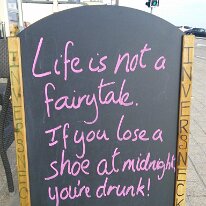 Life is not a
fairytale.
If you lose a
shoe at midnight
you're drunk!
INVERSNECK
INVERSNECK